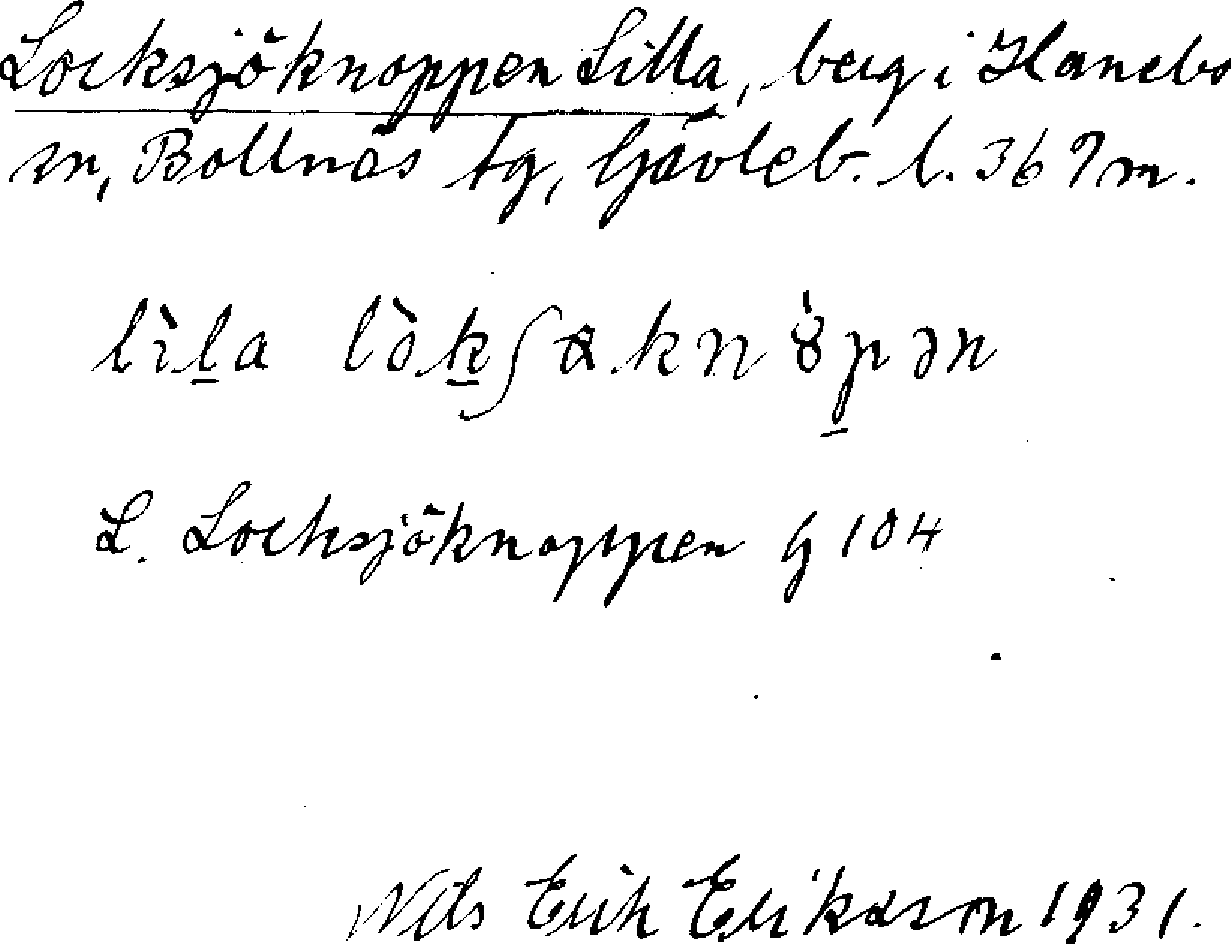 Locksjöknoppen Lilla, berg i Hanebo
sn, Bollnäs tg, Gävleb. l. 369 m.
lìl̠a lòk̠ʃɷkn
L. Locksjöknoppen G 104
Nils Erik Eriksson 1931.